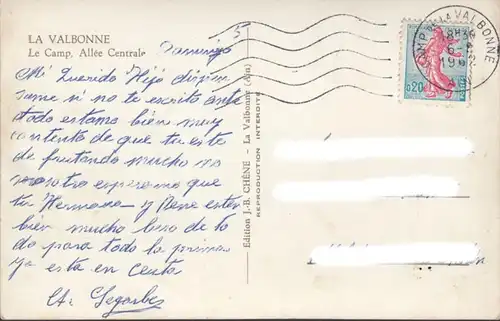 LA VALBONNE
Le Camp, Allée Centrale
Domingo
Mi Querido Hijo
same si no te escrito ante
todo estamo bien muy
contenta de que tu este
de frutando mucho no
nosotro esperamo que
tu Hermana y Rene esten
bien mucho beso de to
do para todo la prima
ya esta en Ceuta
Édition J.-B. CHÊNE - La Valbonne (Ain)
REPRODUCTION INTERDITE
CAMP DE LA VALBONNE
18H30
6-
196
0,20